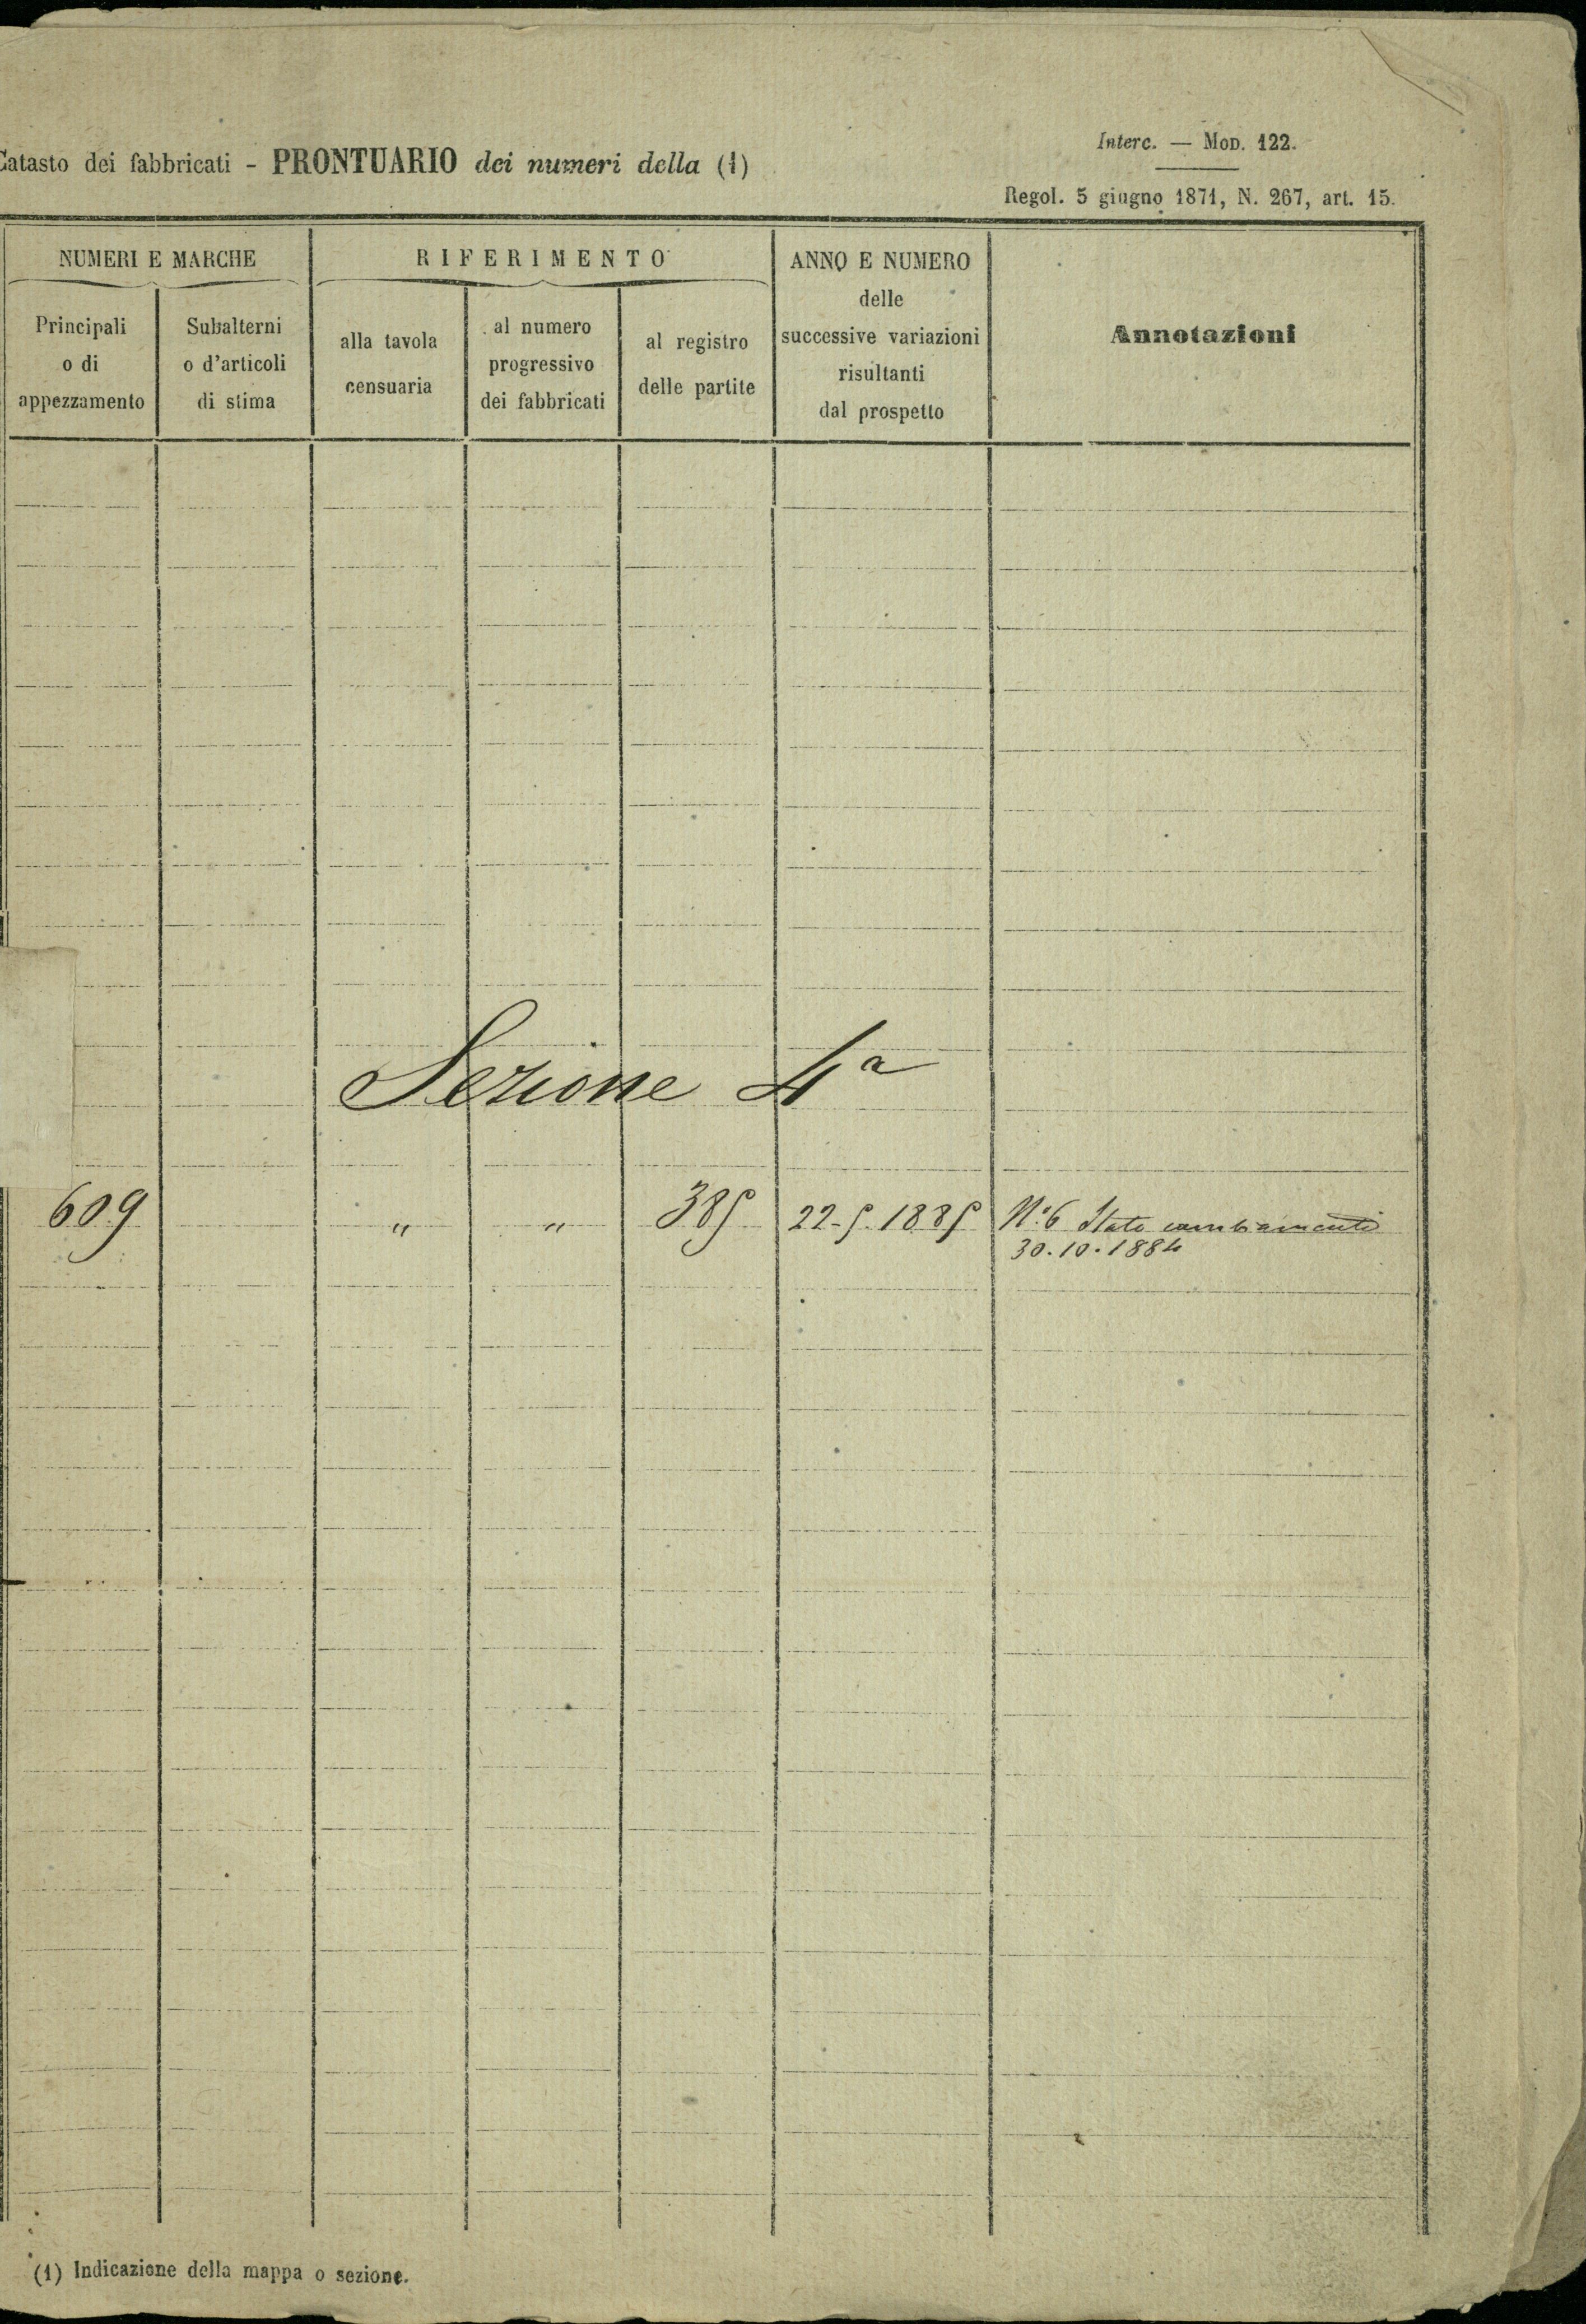 Catasto dei fabbricati - PRONTUARIO dei numeri della (1)
Interc. — MOD. 122.
Regol. 5 giugno 1871, N. 267, art. 15.
NUMERI E MARCHE
RIFERIMENTO
ANNO E NUMERO
delle
successive variazioni
risultanti
dal prospetto
Annotazioni
Principali
o di
appezzamento
Subalterni
o d'articoli
di stima
alla tavola
censuaria
al numero
progressivo
dei fabbricati
al registro
delle partite
Sezione 4a
609 " " 385 22-5.1885 N.o 6 Stato cambiamenti
30.10.1884
(1) Indicazione della mappa o sezione.